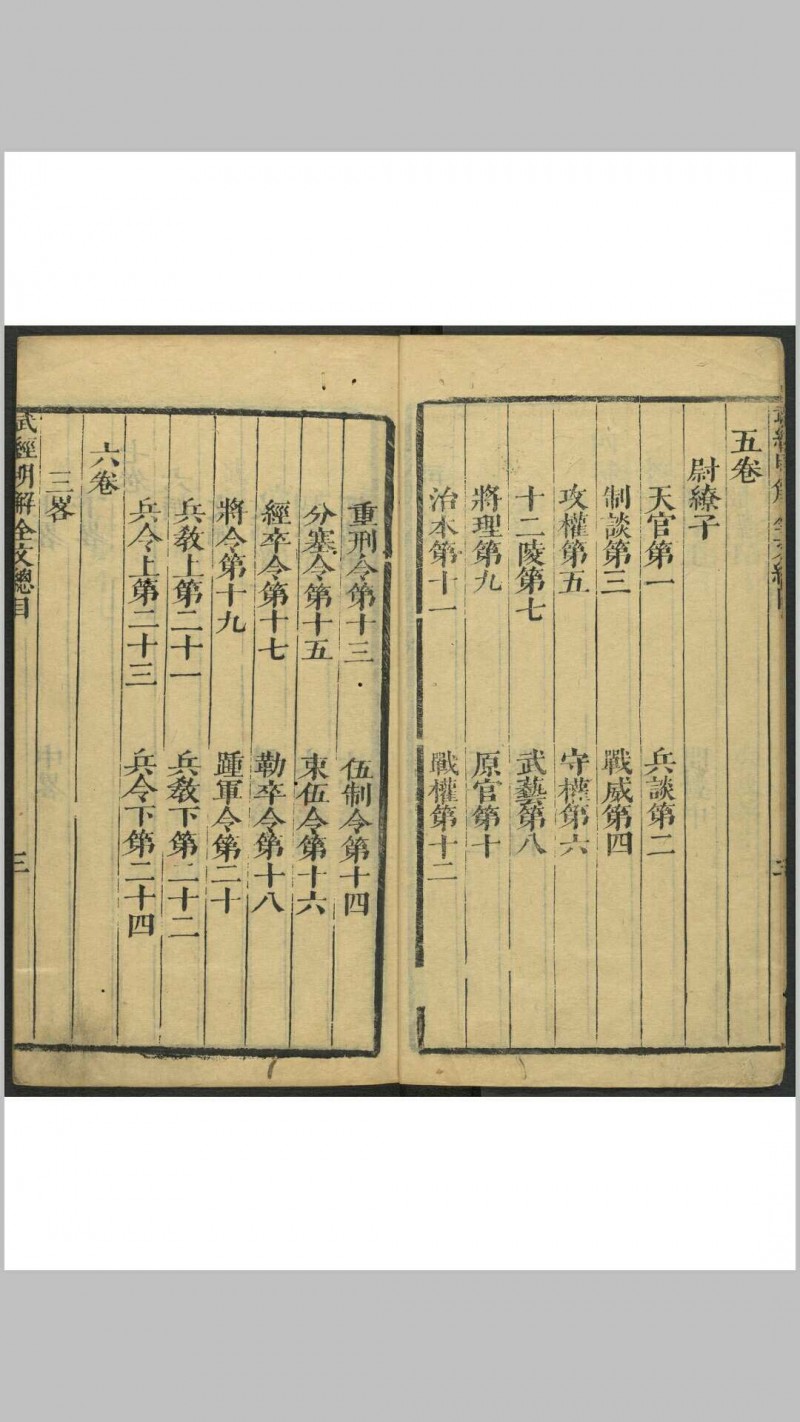 五卷
尉繚子
天官第一 兵談第二
制談第三 戰威第四
攻權第五 守權第六
十二陵第七 武藝第八
將理第九 原官第十
治本第十一 戰權第十二
重刑令第十三 伍制令第十四
分塞令第十五 束伍令第十六
經卒令第十七 勒卒令第十八
將令第十九 踵軍令第二十
兵敎上第二十一 兵敎下第二十二
兵令上第二十三 兵令下第二十四
六卷
三畧
武經明解全文總目 三